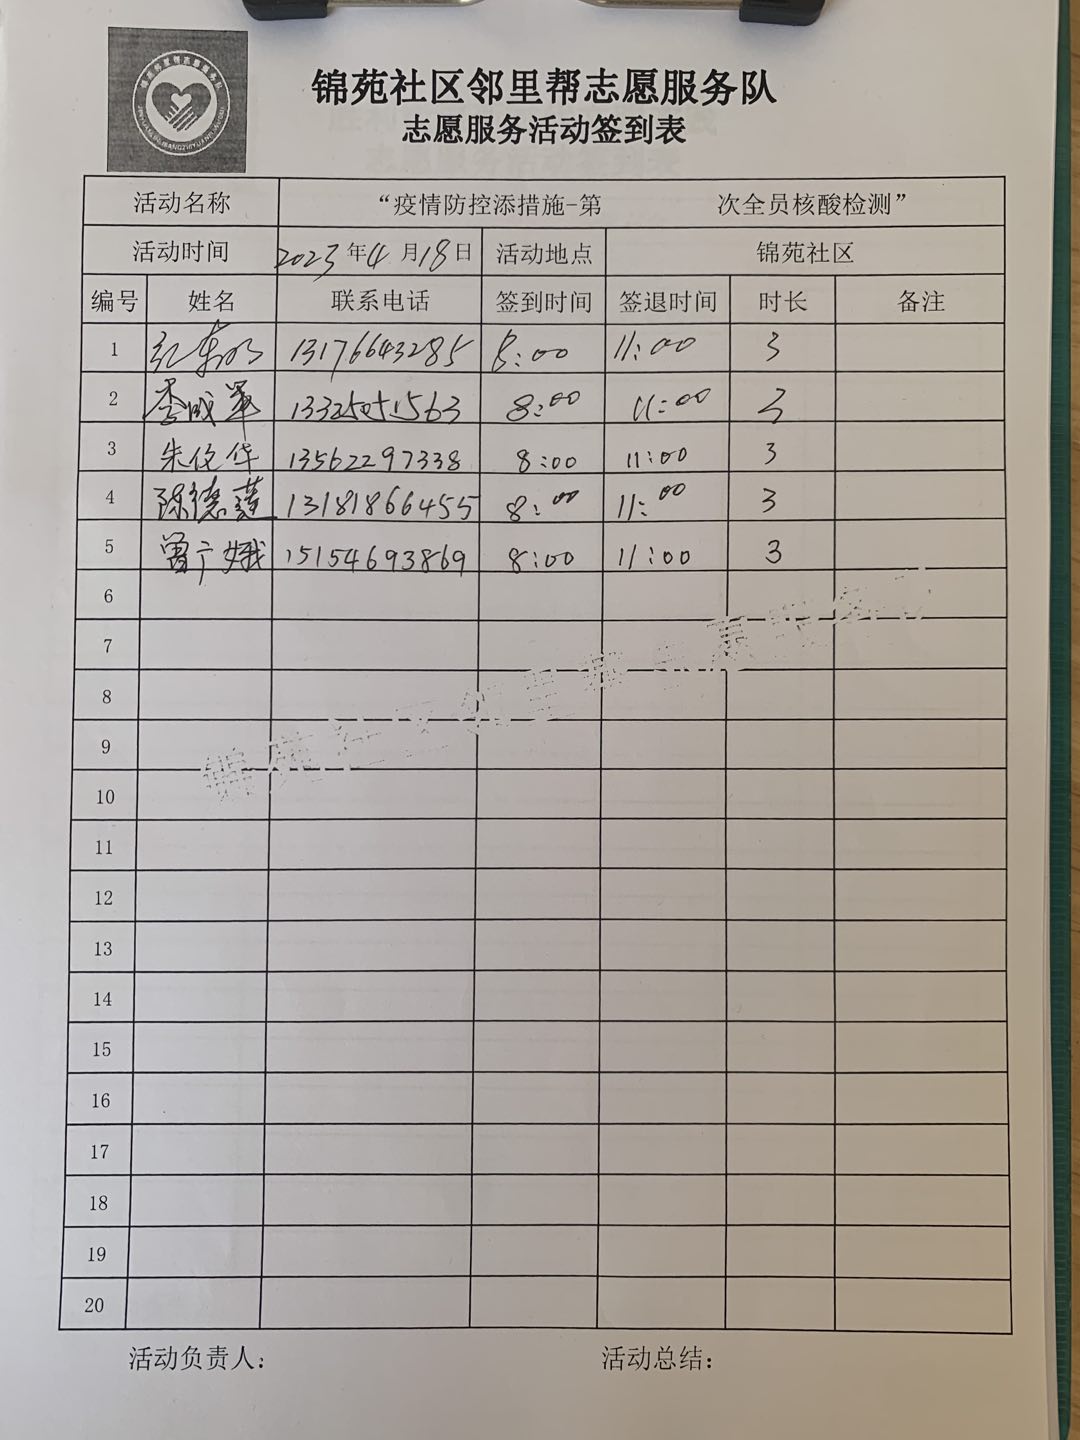 锦苑社区邻里帮志愿服务队
志愿服务活动签到表
活动名称 “疫情防控添措施-第 次全员核酸检测”
活动时间 2023年4月18日 活动地点 锦苑社区
编号 姓名 联系电话 签到时间 签退时间 时长 备注
1 13176643285 8:00 11:00 3
2 李成军 8:00 11:00 3
3 朱化华 13562297338 8:00 11:00 3
4 陈德莲 13181866455 8:00 11:00 3
5 曾广娥 15154693869 8:00 11:00 3
6
7
8
9
10
11
12
13
14
15
16
17
18
19
20
锦苑社区邻里帮志愿服务队
活动负责人: 活动总结: